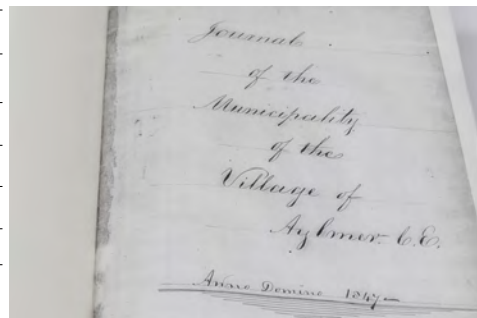 Journal
of the
Municipality
of the
Village of
Aylmer. C.E.
Anno Domino 1847